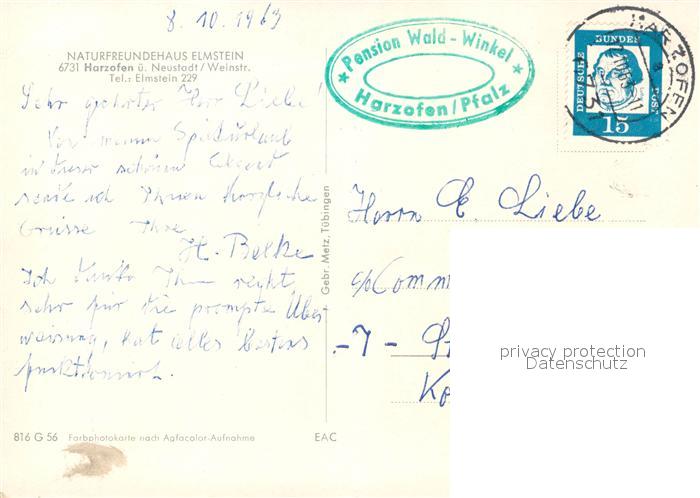 8. 10. 1963
NATURFREUNDEHAUS ELMSTEIN
6731 Harzofen ü. Neustadt / Weinstr.
Tel.: Elmstein 229
Sehr geehrter Herr Liebe!
Von meinem Späturlaub
in dieser schönen Gegend
sende ich Ihnen herzliche
Grüsse Ihre
H. Belke
Ich danke Ihnen recht
sehr für die prompte Über
weisung, hat alles bestens
funktioniert.
816 G 56 Farbphotokarte nach Agfacolor-Aufnahme EAC
Gebr. Metz, Tübingen
Pension Wald-Winkel
Harzofen/Pfalz
HARZOFEN
6731
DEUTSCHE BUNDESPOST
15
Herrn E. Liebe
c/o Comm
-7- St
Ko
privacy protection
Datenschutz